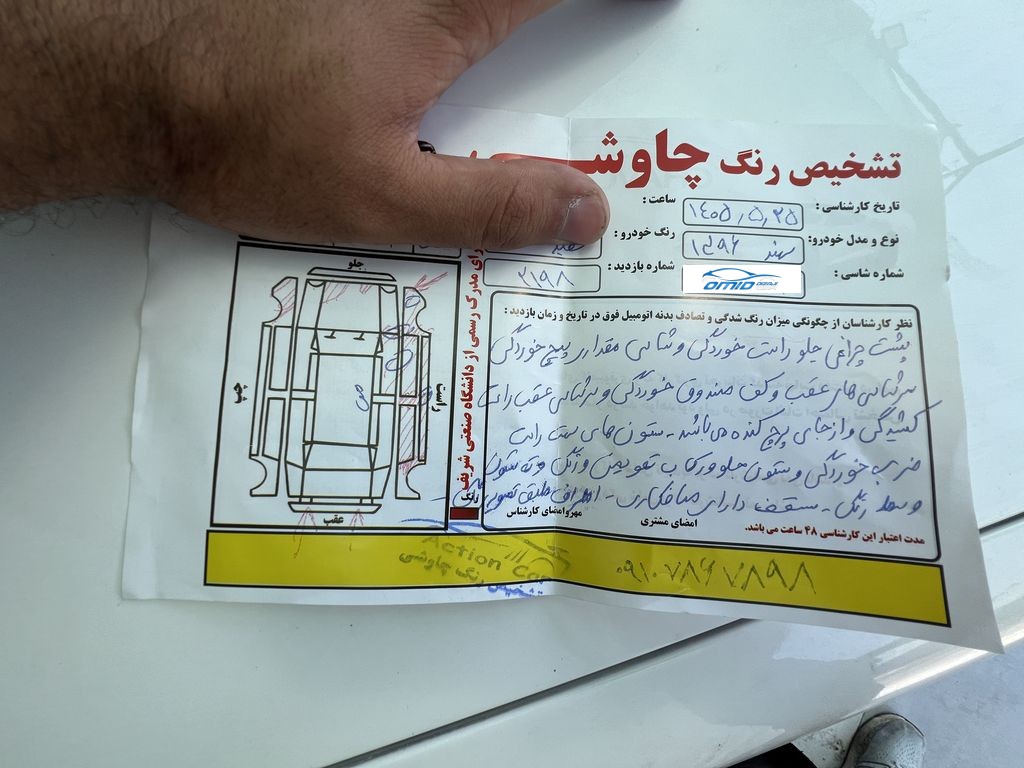 تشخیص رنگ چاوشـــی
تاریخ کارشناسی : ۱۴۰۵,۵,۲۵ ساعت :
نوع و مدل خودرو: سهند ۱۳۹۶ رنگ خودرو : سفید
شماره شاسی : OMID شماره بازدید : ۲۱۹۸
رای مدرک رسمی از دانشگاه صنعتی شریف
نظر کارشناسان از چگونگی میزان رنگ شدگی و تصادف بدنه اتومبیل فوق در تاریخ و زمان بازدید :
پشت چراغی جلو راست خوردگی و شاسی مقدار پیچ خوردگی
سرشاسی های عقب و کف صندوق خوردگی و سرشاسی عقب راست
کشیدگی و از جای پیچ کنده می باشد - ستون های سمت راست
ضرب خوردگی و ستون جلو و رکاب تعویض و رنگ و ته ستون
وسط رنگ - سقف دارای صافکاری - اطراف
مهر و امضای کارشناس
امضای مشتری
مدت اعتبار این کارشناسی ۴۸ ساعت می باشد.
جلو
چپ
راست
عقب
رنگ
Action Car
تشخیص رنگ چاوشی
۰۹۱۰۷۸۶۷۸۹۸